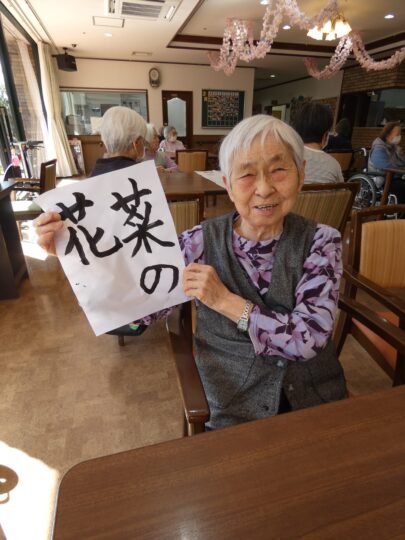 菜の
花